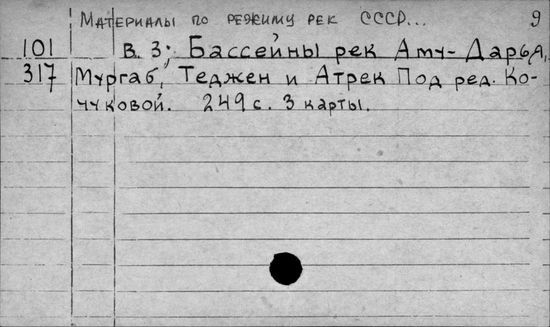 Материалы по режиму рек СССР... 9
101 В. 3; Бассейны рек Аму-Дарья,
317 Мургаб, Теджен и Атрек Под ред. Ко-
чуковой. 249 с. 3 карты.